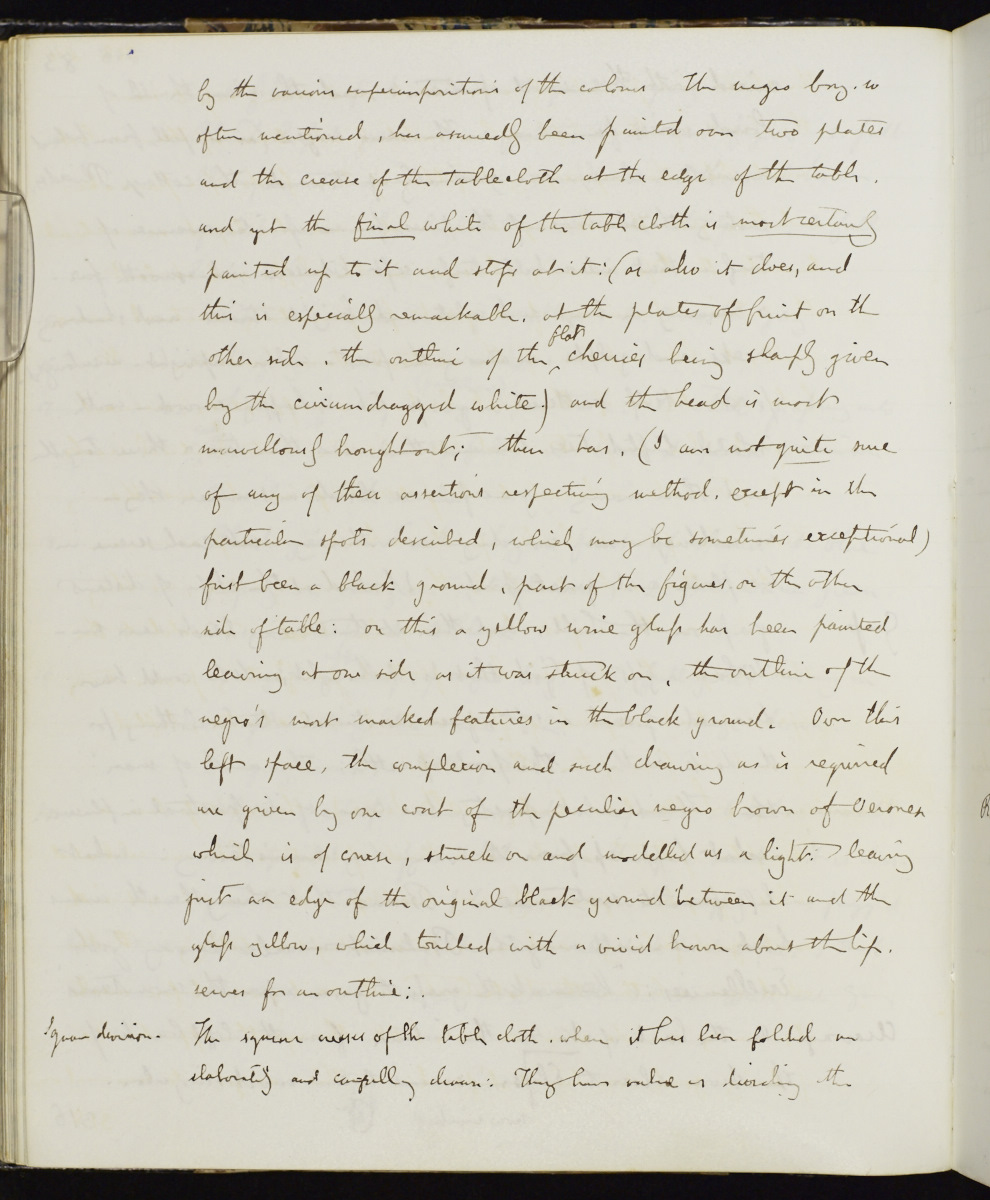 by the various superimpositions of the colours The negro boy. so
often mentioned, has assuredly been painted over two plates
and the crease of the tablecloth at the edge of the table.
and yet the final white of the table cloth is most certainly
painted up to it and stops at it: (as also it does, and
this is especially remarkable. at the plates of fruit on the
flat
other side. the outline of the cherries being sharply given
by the circumdragged white.) and the head is most
marvellously brought out; there has. (I am not quite sure
of any of these assertions respecting method. except in the
particular spots described, which may be sometimes exceptional)
first been a black ground, part of the figures on the other
side of table: on this a yellow wine glass has been painted
leaving at one side as it was struck on, the outline of the
negro's most marked features in the black ground. Over this
left space, the complexion and such drawing as is required
are given by one coat of the peculiar negro brown of Veronese
which is of course, struck on and modelled as a light: leaving
just an edge of the original black ground between it and the
glass yellow, which touched with a vivid brown about the lip.
serves for an outline:.
Square division. The square creases of the table cloth. where it has been folded are
elaborately and carefully drawn: They have value as dividing the